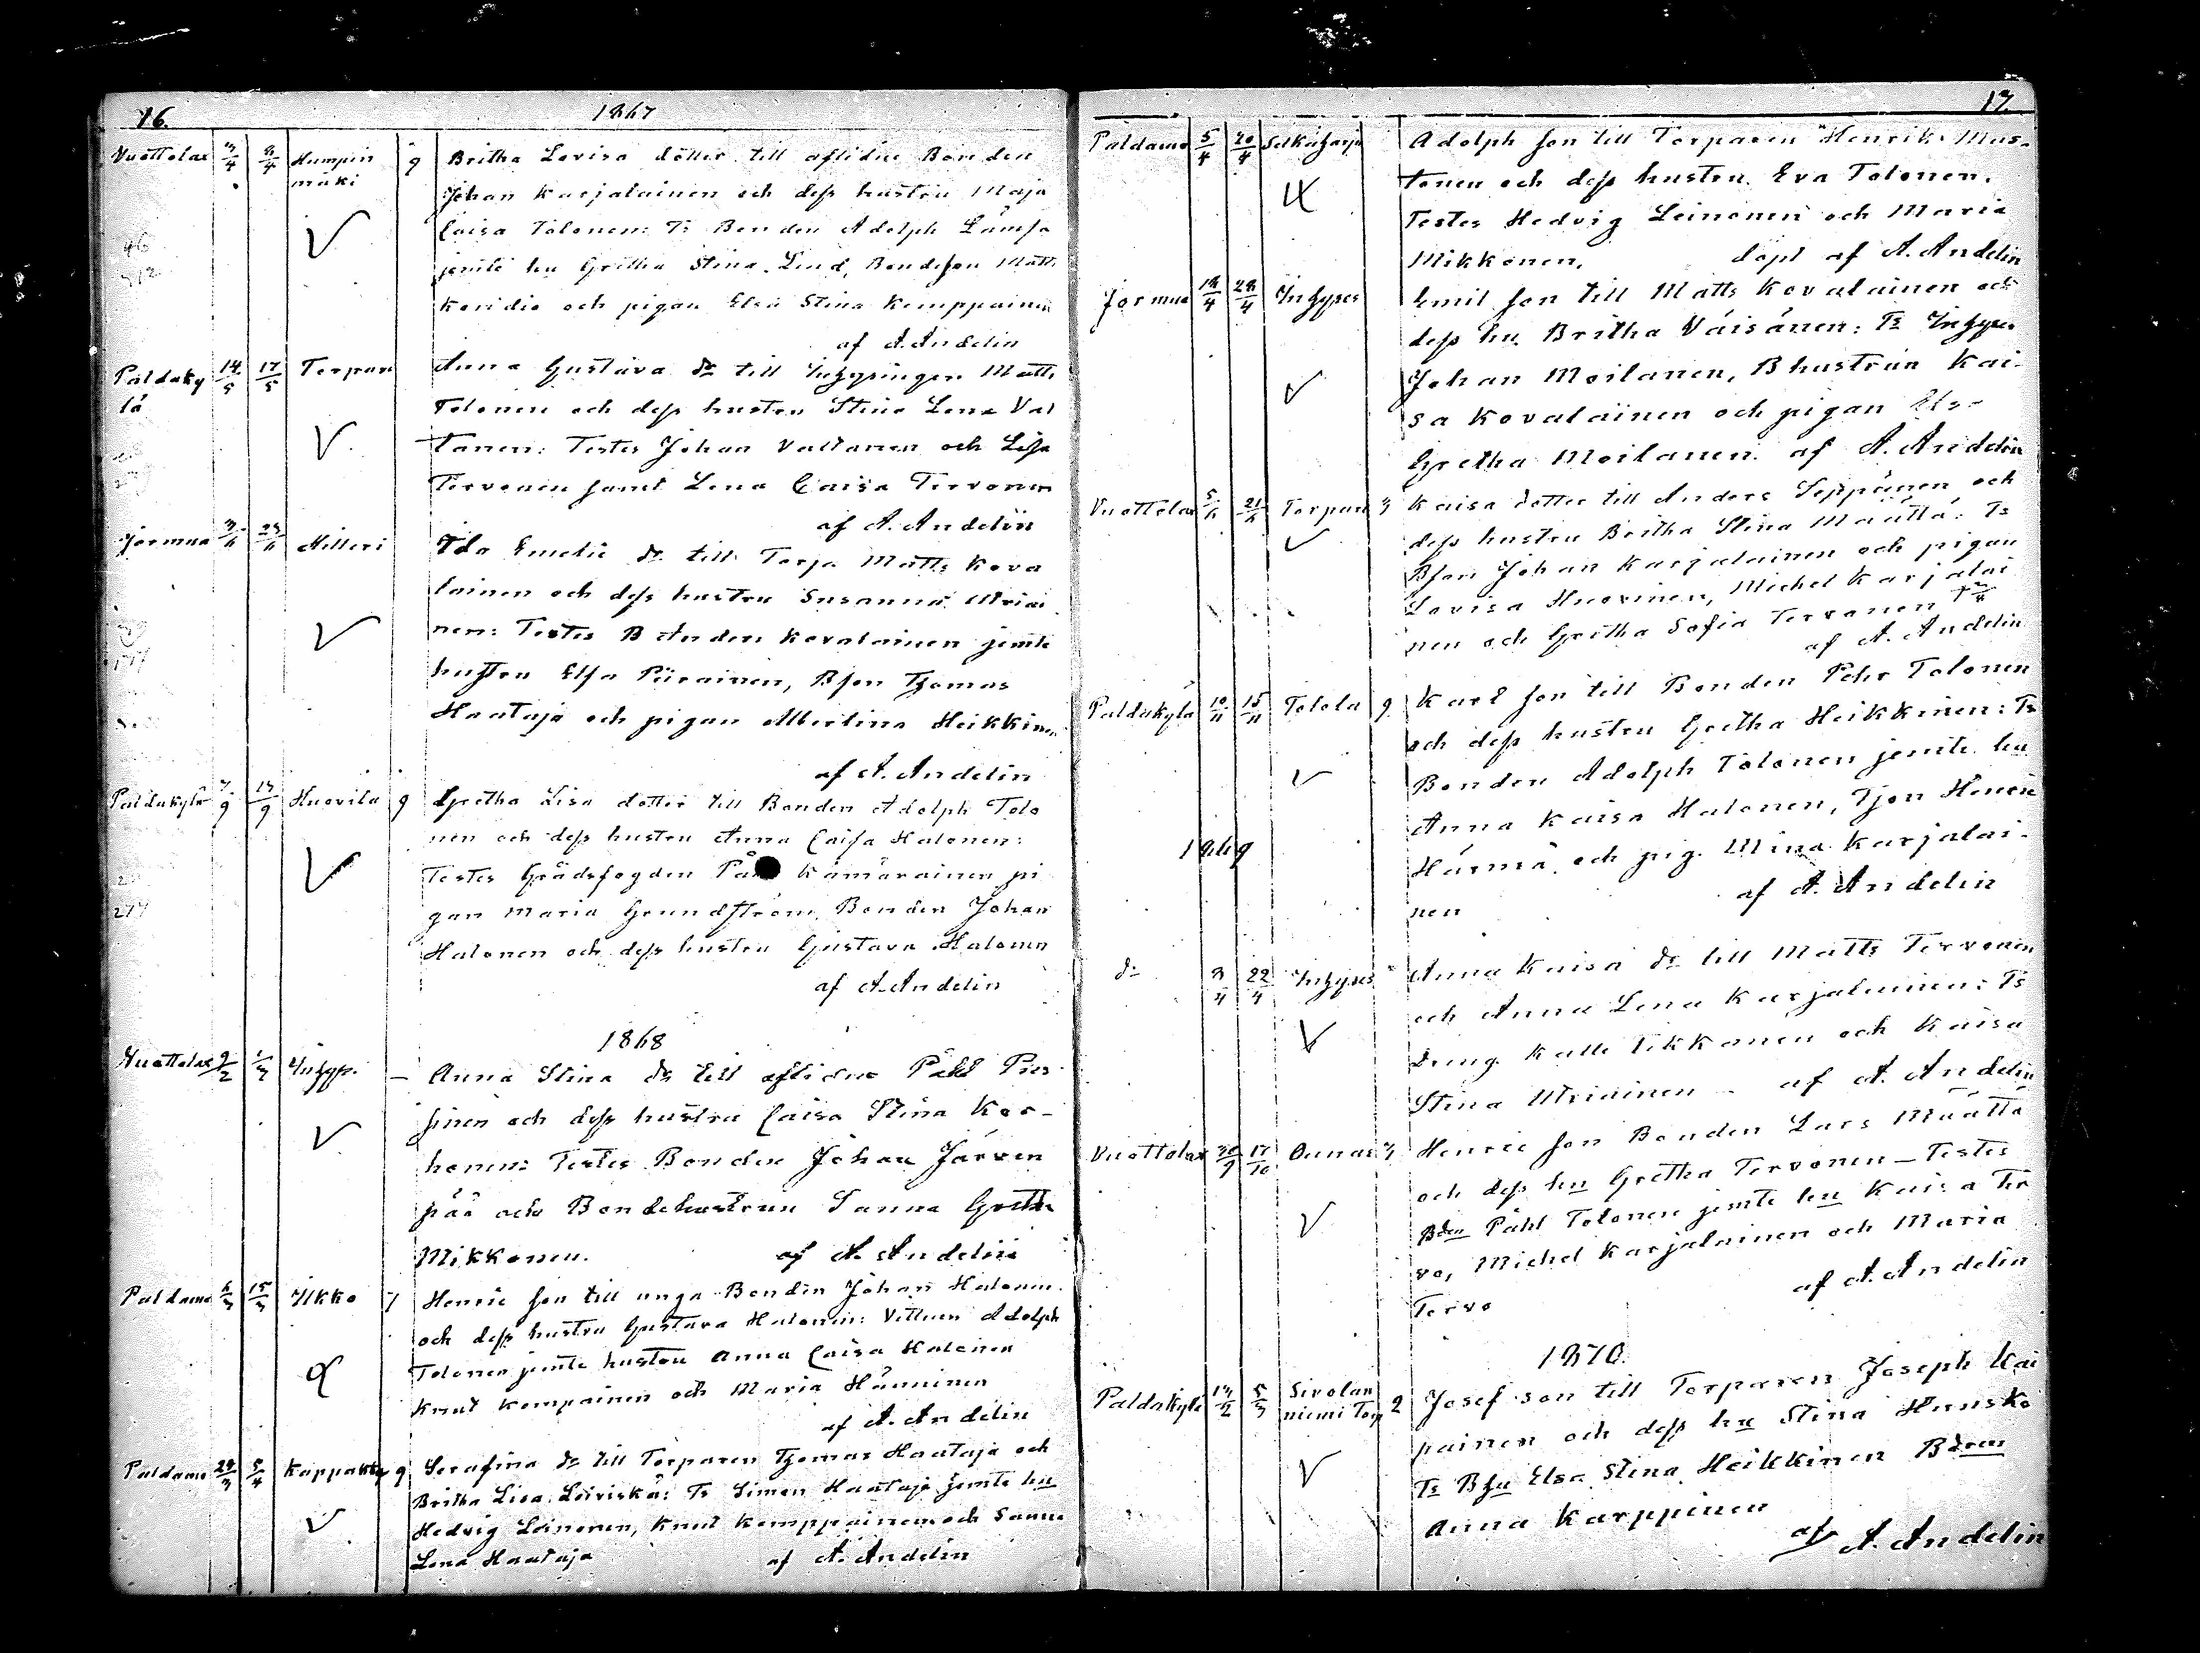 16.
1867
Vuottolax 3/4 8/4 Humpin mäki 9
Britha Lovisa dotter till aflidne Bonden
Johan Karjalainen och dess hustru Maja
Caisa Tolonen: Ts Bonden Adolph Lämsä
jemte hu Gretha Stina Lind, Bondeson Matts
Keridio och pigan Elsa Stina Kemppainen
af A. Andelin
Paldaky lä 14/5 17/5 Torpari
Anna Gustava dr till Inhysingen Matts
Tolonen och dess hustru Stina Lena Val
tanen: Testes Johan Valtanen och Lisa
Tervonen samt Lena Caisa Tervonen
af A. Andelin
Jormua 3/6 23/6 Milleri
Ida Emelie dr till Torp Matts Kova
lainen och dess hustru Susanna Mriai
nen: Testes B Anders Kovalainen jemte
hustru Elsa Piirainen, Bson Thomas
Haataja och pigan Albertina Heikkinen
af A. Andelin
Paldakyla 7/9 17/9 Huovila 9
Gretha Lisa dotter till Bonden Adolph Tolo
nen och dess hustru Anna Caisa Halonen:
Testes Kämäräinen pi
gan Maria Grundström, Bonden Johan
Halonen och dess hustru Gustava Halonen
af A. Andelin
1868
Vuottolax 9/2 1/3 Inhys. –
Anna Stina dr till aflidne Påhl Pies
sinen och dess hustru Caisa Stina Kor-
honen: Testes Bonden Johan Järven
pää och Bondehustrun Sanna Gretha
Mikkonen. af A. Andelin
Paldamo 6/3 15/3 Ikko 7
Henric son till unga Bonden Johan Halonen
och dess hustru Gustava Halonen: Vittnen Adolph
Tolonen jemte hustru Anna Caisa Halonen
Knut Kempainen och Maria Hänninen
af A. Andelin
Paldamo 29/3 5/4 9
Serafina dr till Torparen Thomas Haataja och
Britha Lisa Leiviskä: Ts Simon Haataja jemte hu
Hedvig Leinonen, Knut Kemppainen och Sanna
Lena Haataja af A. Andelin
17.
Paldamo 5/4 20/4 Selkäharju
Adolph son till Torparen Henrik Mus-
tonen och dess hustru Eva Tolonen.
Testes Hedvig Leinonen och Maria
Mikkonen. döpt af A. Andelin
Jormua 18/4 28/4 Inhyses
Emil son till Matts Kovalainen och
dess hu. Britha Väisänen: Ts Inhyses
Johan Moilanen, Bhustrun Kai-
sa Kovalainen och pigan Els-
Gretha Moilanen. af A. Andelin
Vuottolax 5/6 21/6 Torpari 3
Kaisa dotter till Anders Seppänen och
dess hustru Britha Stina Määttä: Ts
Bson Johan Karjalainen och pigan
Lovisa Huovinen, Michel Karjalai
nen och Gretha Sofia Tervonen
af A. Andelin
Paldakyla 10/11 15/11 Tolola 9
Karl son till Bonden Pehr Tolonen
och dess hustru Gretha Heikkinen: Ts
Bonden Adolph Tolonen jemte hu
Anna Kaisa Halonen, Tjon Henric
Härmä och pig. Mina Karjalai-
nen af A. Andelin
1869
do 3/4 22/4 Inhyses
Anna Kaisa dr till Matts Tervonen
och Anna Lena Karjalainen: Ts
Dräng. Kalle Tikkanen och Kaisa
Stina Mriainen – af A. Andelin
Vuottolax 30/9 17/10 Ounas 3
Henric son Bonden Lars Määttä
och dess hu Gretha Tervonen – Testes
Bden Påhl Tolonen jemte hu Kaisa Ter
vo, Michel Karjalainen och Maria
Tervo af A. Andelin
1870.
Paldakyla 14/2 5/3 Sivolan niemi Torp 2
Josef son till Torparen Joseph Kai
painen och dess hu Stina Hunsko
Ts Bhu Elsa Stina Heikkinen Bdren
Anna Karppinen
af A. Andelin